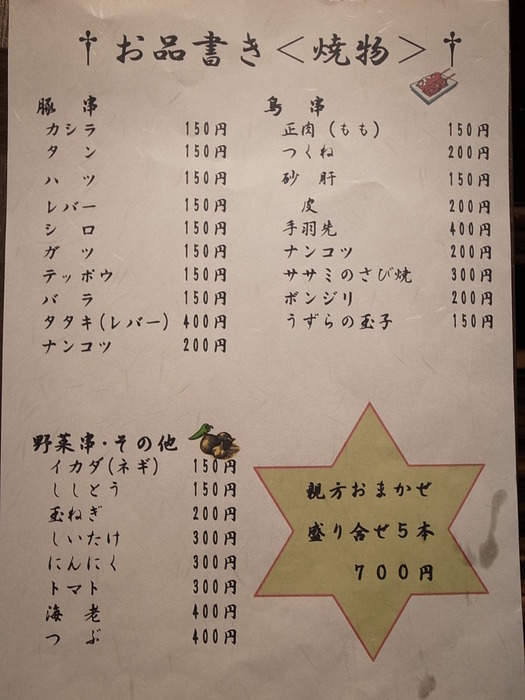 †お品書き＜焼物＞†
豚 串
カシラ 150円
タン 150円
ハツ 150円
レバー 150円
シロ 150円
ガツ 150円
テッポウ 150円
バラ 150円
タタキ(レバー) 400円
ナンコツ 200円
鳥 串
正肉 (もも) 150円
つくね 200円
砂 肝 150円
皮 200円
手羽先 400円
ナンコツ 200円
ササミのさび焼 300円
ボンジリ 200円
うずらの玉子 150円
野菜串・その他
イカダ(ネギ) 150円
ししとう 150円
玉ねぎ 200円
しいたけ 300円
にんにく 300円
トマト 300円
海 老 400円
つ ぶ 400円
親方おまかせ
盛り合せ5本
700円